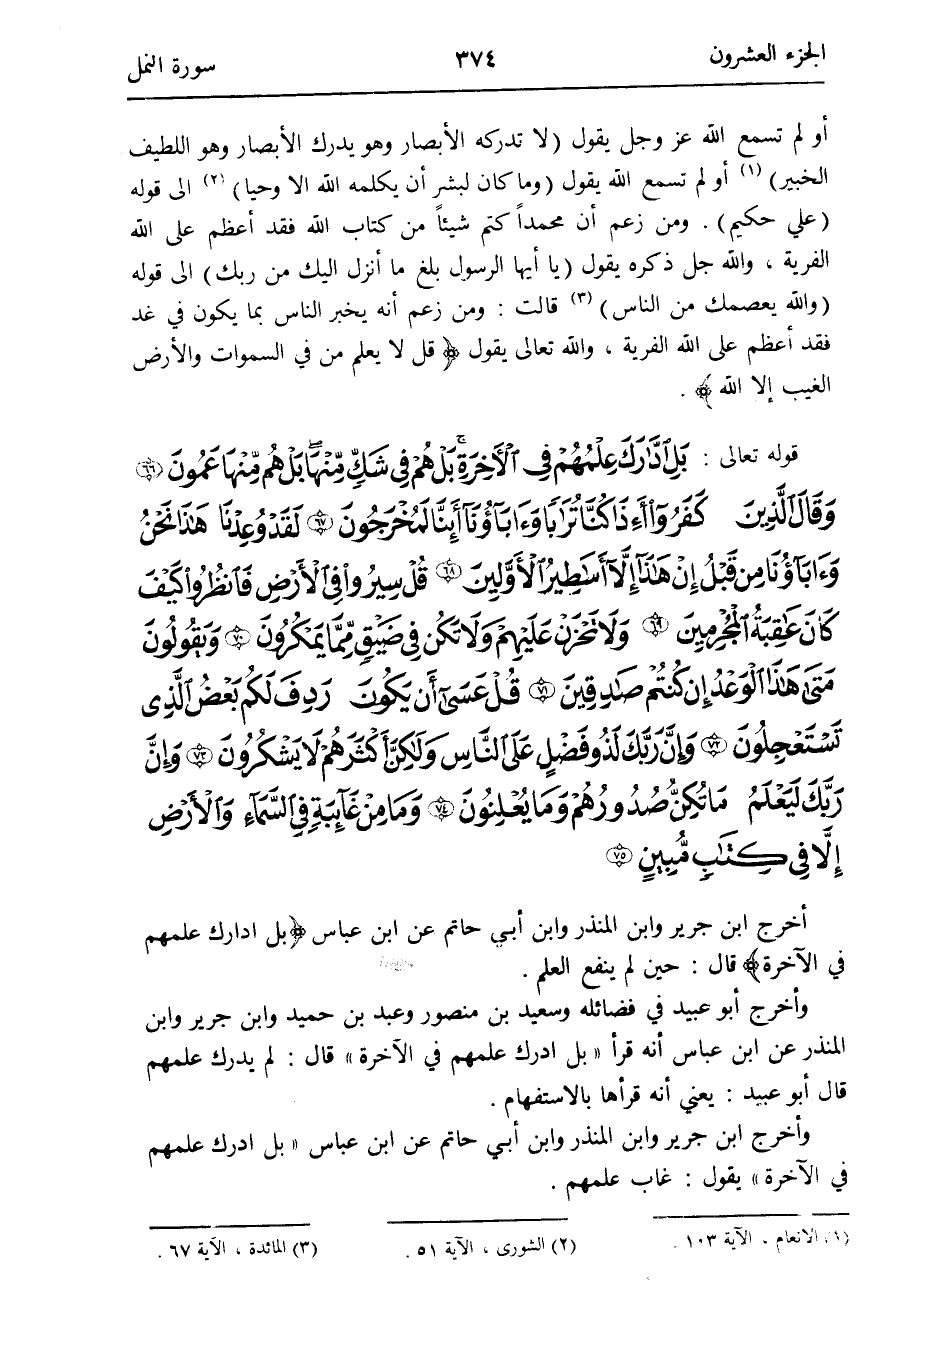 الجزء العشرون ٣٧٤ سورة النمل
أو لم تسمع الله عز وجل يقول (لا تدركه الأبصار وهو يدرك الأبصار وهو اللطيف
الخبير) (١) أو لم تسمع الله يقول (وما كان لبشر أن يكلمه الله الا وحيا) (٢) الى قوله
(علي حكيم) . ومن زعم أن محمداً كتم شيئاً من كتاب الله فقد أعظم على الله
الفرية ، والله جل ذكره يقول (يا أيها الرسول بلغ ما أنزل اليك من ربك) الى قوله
(والله يعصمك من الناس) (٣) قالت : ومن زعم أنه يخبر الناس بما يكون في غد
فقد أعظم على الله الفرية ، والله تعالى يقول ﴿ قل لا يعلم من في السموات والأرض
الغيب إلا الله ﴾ .
قوله تعالى : بَلِ ٱدَّٰرَكَ عِلْمُهُمْ فِى ٱلْأَخِرَةِۚ بَلْ هُمْ فِى شَكٍّۢ مِّنْهَاۖ بَلْ هُم مِّنْهَا عَمُونَ ٦٦
وَقَالَ ٱلَّذِينَ كَفَرُوٓا۟ أَءِذَا كُنَّا تُرَٰبًا وَءَابَآؤُنَآ أَئِنَّا لَمُخْرَجُونَ ٦٧ لَقَدْ وُعِدْنَا هَٰذَا نَحْنُ
وَءَابَآؤُنَا مِن قَبْلُ إِنْ هَٰذَآ إِلَّآ أَسَٰطِيرُ ٱلْأَوَّلِينَ ٦٨ قُلْ سِيرُوا۟ فِى ٱلْأَرْضِ فَٱنظُرُوا۟ كَيْفَ
كَانَ عَٰقِبَةُ ٱلْمُجْرِمِينَ ٦٩ وَلَا تَحْزَنْ عَلَيْهِمْ وَلَا تَكُن فِى ضَيْقٍۢ مِّمَّا يَمْكُرُونَ ٧٠ وَيَقُولُونَ
مَتَىٰ هَٰذَا ٱلْوَعْدُ إِن كُنتُمْ صَٰدِقِينَ ٧١ قُلْ عَسَىٰٓ أَن يَكُونَ رَدِفَ لَكُم بَعْضُ ٱلَّذِى
تَسْتَعْجِلُونَ ٧٢ وَإِنَّ رَبَّكَ لَذُو فَضْلٍ عَلَى ٱلنَّاسِ وَلَٰكِنَّ أَكْثَرَهُمْ لَا يَشْكُرُونَ ٧٣ وَإِنَّ
رَبَّكَ لَيَعْلَمُ مَا تُكِنُّ صُدُورُهُمْ وَمَا يُعْلِنُونَ ٧٤ وَمَا مِنْ غَآئِبَةٍۢ فِى ٱلسَّمَآءِ وَٱلْأَرْضِ
إِلَّا فِى كِتَٰبٍۢ مُّبِينٍ ٧٥
أخرج ابن جرير وابن المنذر وابن أبي حاتم عن ابن عباس ﴿بل ادارك علمهم
في الآخرة﴾ قال : حين لم ينفع العلم .
وأخرج أبو عبيد في فضائله وسعيد بن منصور وعبد بن حميد وابن جرير وابن
المنذر عن ابن عباس أنه قرأ « بل ادرك علمهم في الآخرة » قال : لم يدرك علمهم
قال أبو عبيد : يعني أنه قرأها بالاستفهام .
وأخرج ابن جرير وابن المنذر وابن أبي حاتم عن ابن عباس « بل ادرك علمهم
في الآخرة » يقول : غاب علمهم .
(١) الانعام ، الآية ١٠٣ . (٢) الشورى ، الآية ٥١ . (٣) المائدة ، الآية ٦٧ .